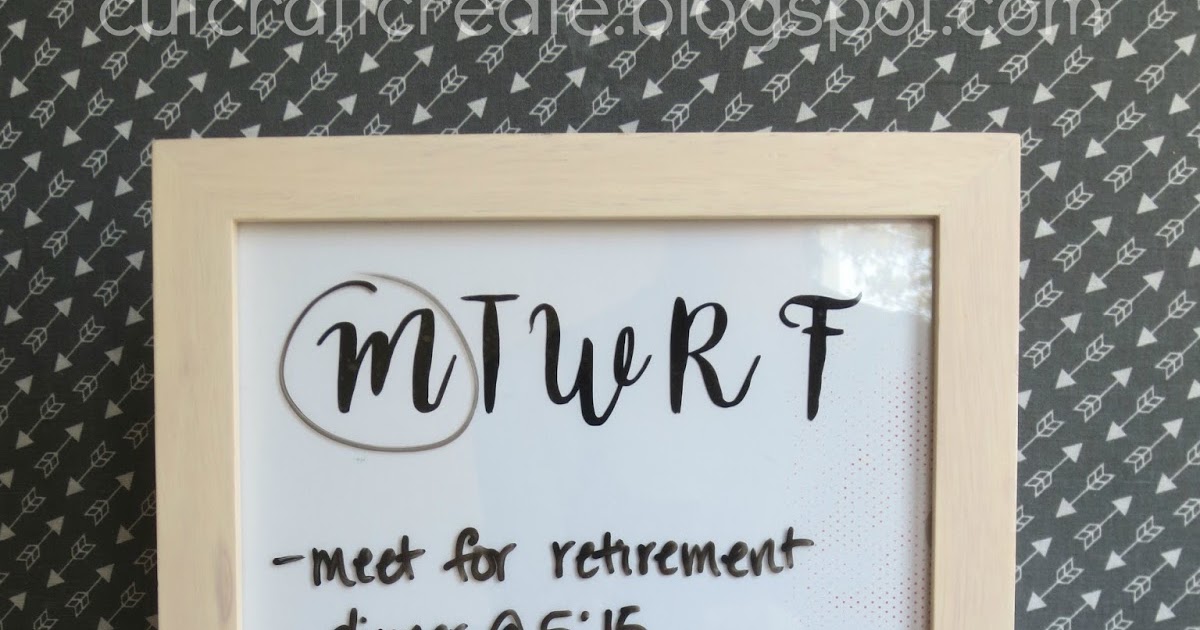 cutcraftcreate.blogspot.com
M T W R F
- meet for retirement
dinner @ 5:15